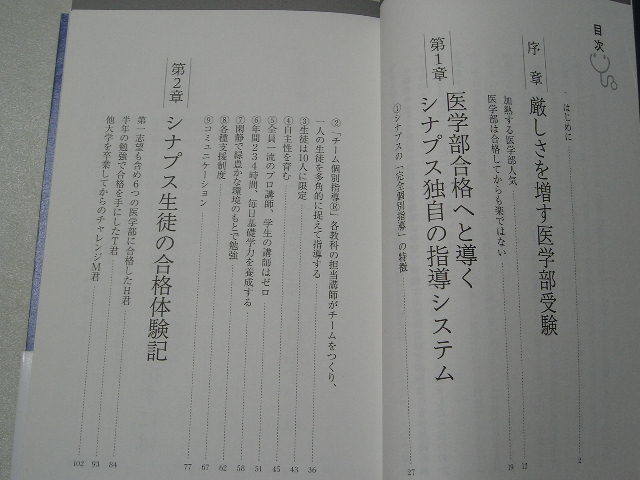 目次
はじめに 2
序章 厳しさを増す医学部受験
加熱する医学部人気 12
医学部は合格してからも楽ではない 19
第1章 医学部合格へと導く
シナプス独自の指導システム
①シナプスの「完全個別指導」の特徴 27
②「チーム個別指導®」各教科の担当講師がチームをつくり、
一人の生徒を多角的に捉えて指導する 36
③生徒は10人に限定 43
④自主性を育む 45
⑤全員一流のプロ講師、学生の講師はゼロ 51
⑥年間234時間、毎日基礎学力を養成する 57
⑦閑静で緑豊かな環境のもとで勉強 58
⑧各種支援制度 62
⑨コミュニケーション 67
第2章 シナプス生徒の合格体験記 77
第一志望も含め6つの医学部に合格したH君 84
半年の勉強で合格を手にしたT君 93
他大学を卒業してからのチャレンジM君 102